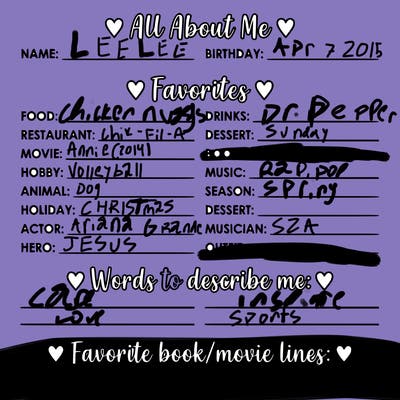 ♥ All About Me ♥
NAME: LEELEE BIRTHDAY: Apr 7 2015
♥ Favorites ♥
FOOD: Chicken nuggs DRINKS: Dr. Pepper
RESTAURANT: Chik-Fil-A DESSERT: Sunday
MOVIE: Annie(2014)
HOBBY: Volleyball MUSIC: Rap, pop
ANIMAL: Dog SEASON: Spring
HOLIDAY: CHRISTmas DESSERT:
ACTOR: Ariana Grande MUSICIAN: SZA
HERO: JESUS
♥ Words to describe me: ♥
Love Sports
♥ Favorite book/movie lines: ♥